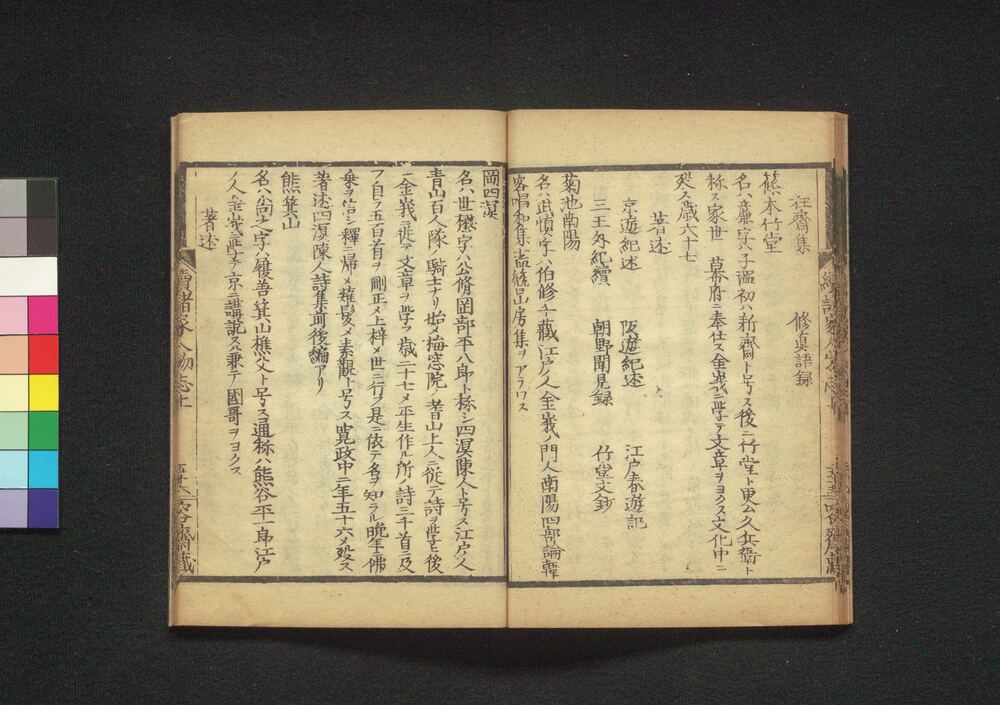 狂齋集　修眞語録
篠本竹堂
名ハ廉字ハ子温初ハ新齋ト号ス後ニ竹堂ト更ム久兵衞ト
称ス家世〻幕府ニ奉仕ス金峩ニ學テ文章ヲヨクス文化中ニ
歿ス歳六十七
著述
京遊紀述　阪遊紀述　江戸春遊記
三王外紀續　朝野聞見録　竹堂文鈔
菊池南陽
名ハ武慎字ハ伯修千藏江戸ノ人金峩ノ門人南陽四部論韓
客唱和集
山房集ヲアラワス
岡四溟
名ハ世懋字ハ公脩岡部平八郎ト称シ四溟陳人ト号ス江戸ノ人
青山百人隊ノ騎士ナリ始メ梅窓院ノ耆山上人ニ従テ詩ヲ學ヒ後
ニ金峩ニ従テ文章ヲ学フ歳二十七メ平生作ル所ノ詩三千首ニ及
フ自ラ五百首ヲ刪正メ上梓メ世ニ行ノ是ニ依テ名ヲ知ラル晩年ニ佛
乗ヲ信シ釋ニ帰メ薙髪メ素觀ト号ス寛政中ニ年五十六メ歿ス
著述四溟陳人詩集前後編アリ
熊箕山
名ハ
字ハ履善箕山樵父ト号ス通称ハ熊谷平一郎江戸
ノ人金峩ニ學テ京ニ講説ス兼テ國哥ヲヨクス
著述
續諸家人物志上